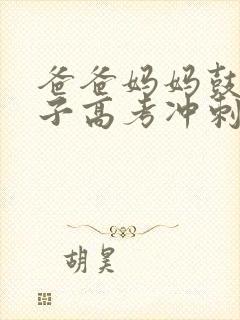 爸爸妈妈鼓
子高考冲刺
胡昊